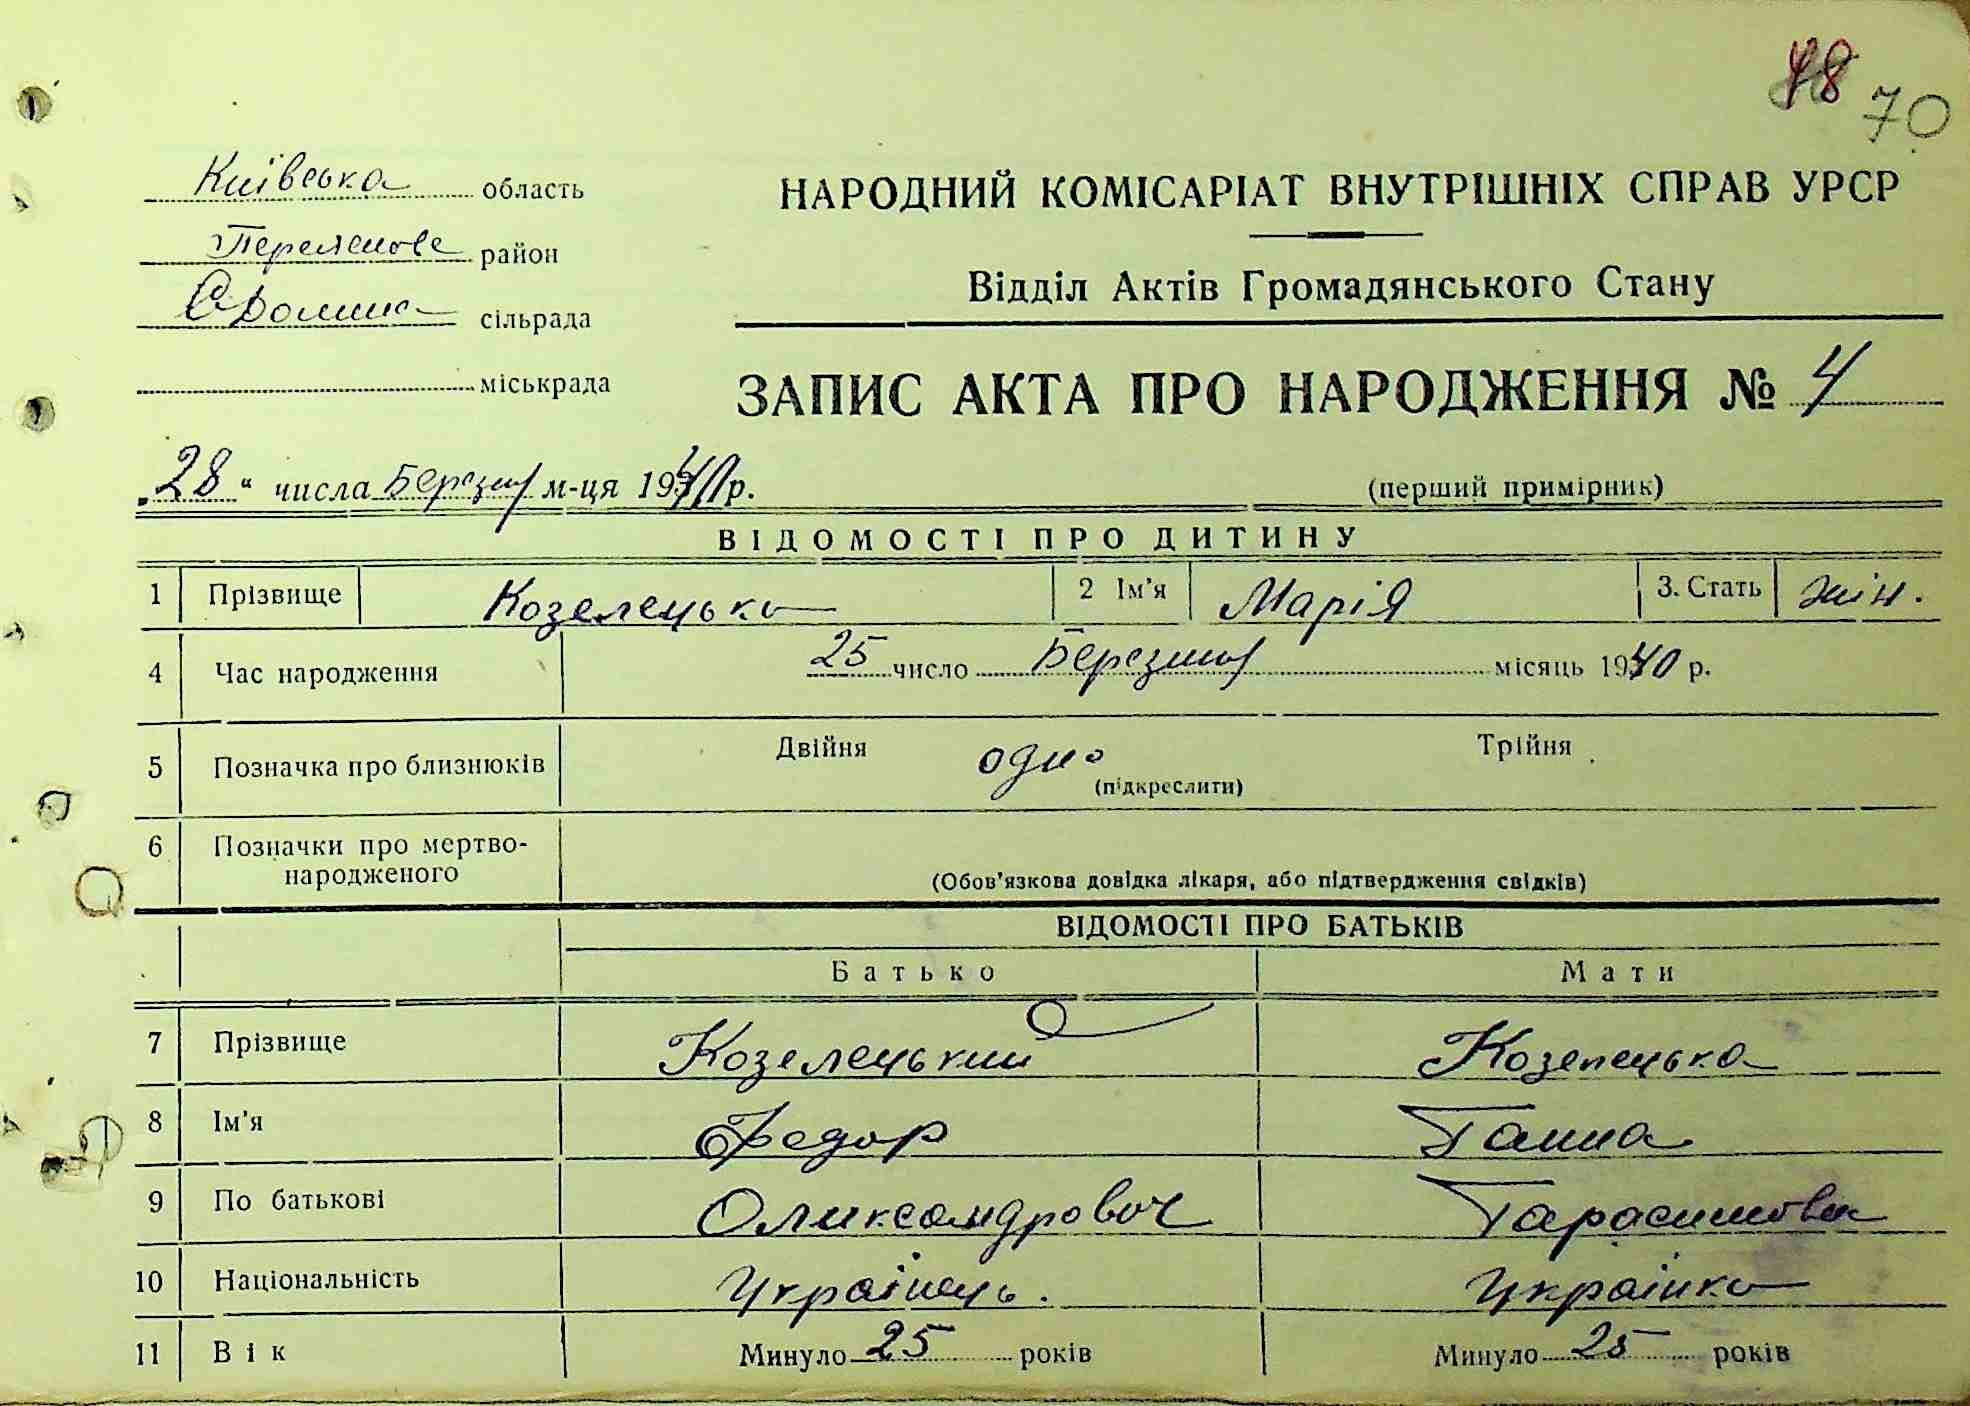 48 70
Київська область
район
сільрада
міськрада
НАРОДНИЙ КОМІСАРІАТ ВНУТРІШНІХ СПРАВ УРСР
Відділ Актів Громадянського Стану
ЗАПИС АКТА ПРО НАРОДЖЕННЯ № 4
„28“ числа Березня м-ця 1940 р.
(перший примірник)
ВІДОМОСТІ ПРО ДИТИНУ
1 Прізвище Козелецька 2 Ім'я Марія 3. Стать жін.
4 Час народження 25 число Березня місяць 1940 р.
5 Позначка про близнюків Двійня одно Трійня
(підкреслити)
6 Позначки про мертво-
народженого
(Обов'язкова довідка лікаря, або підтвердження свідків)
ВІДОМОСТІ ПРО БАТЬКІВ
Батько Мати
7 Прізвище Козелецький Козелецька
8 Ім'я Федор Ганна
9 По батькові Олександрович Тарасимовна
10 Національність Українець. Українка
11 Вік Минуло 25 років Минуло 25 років